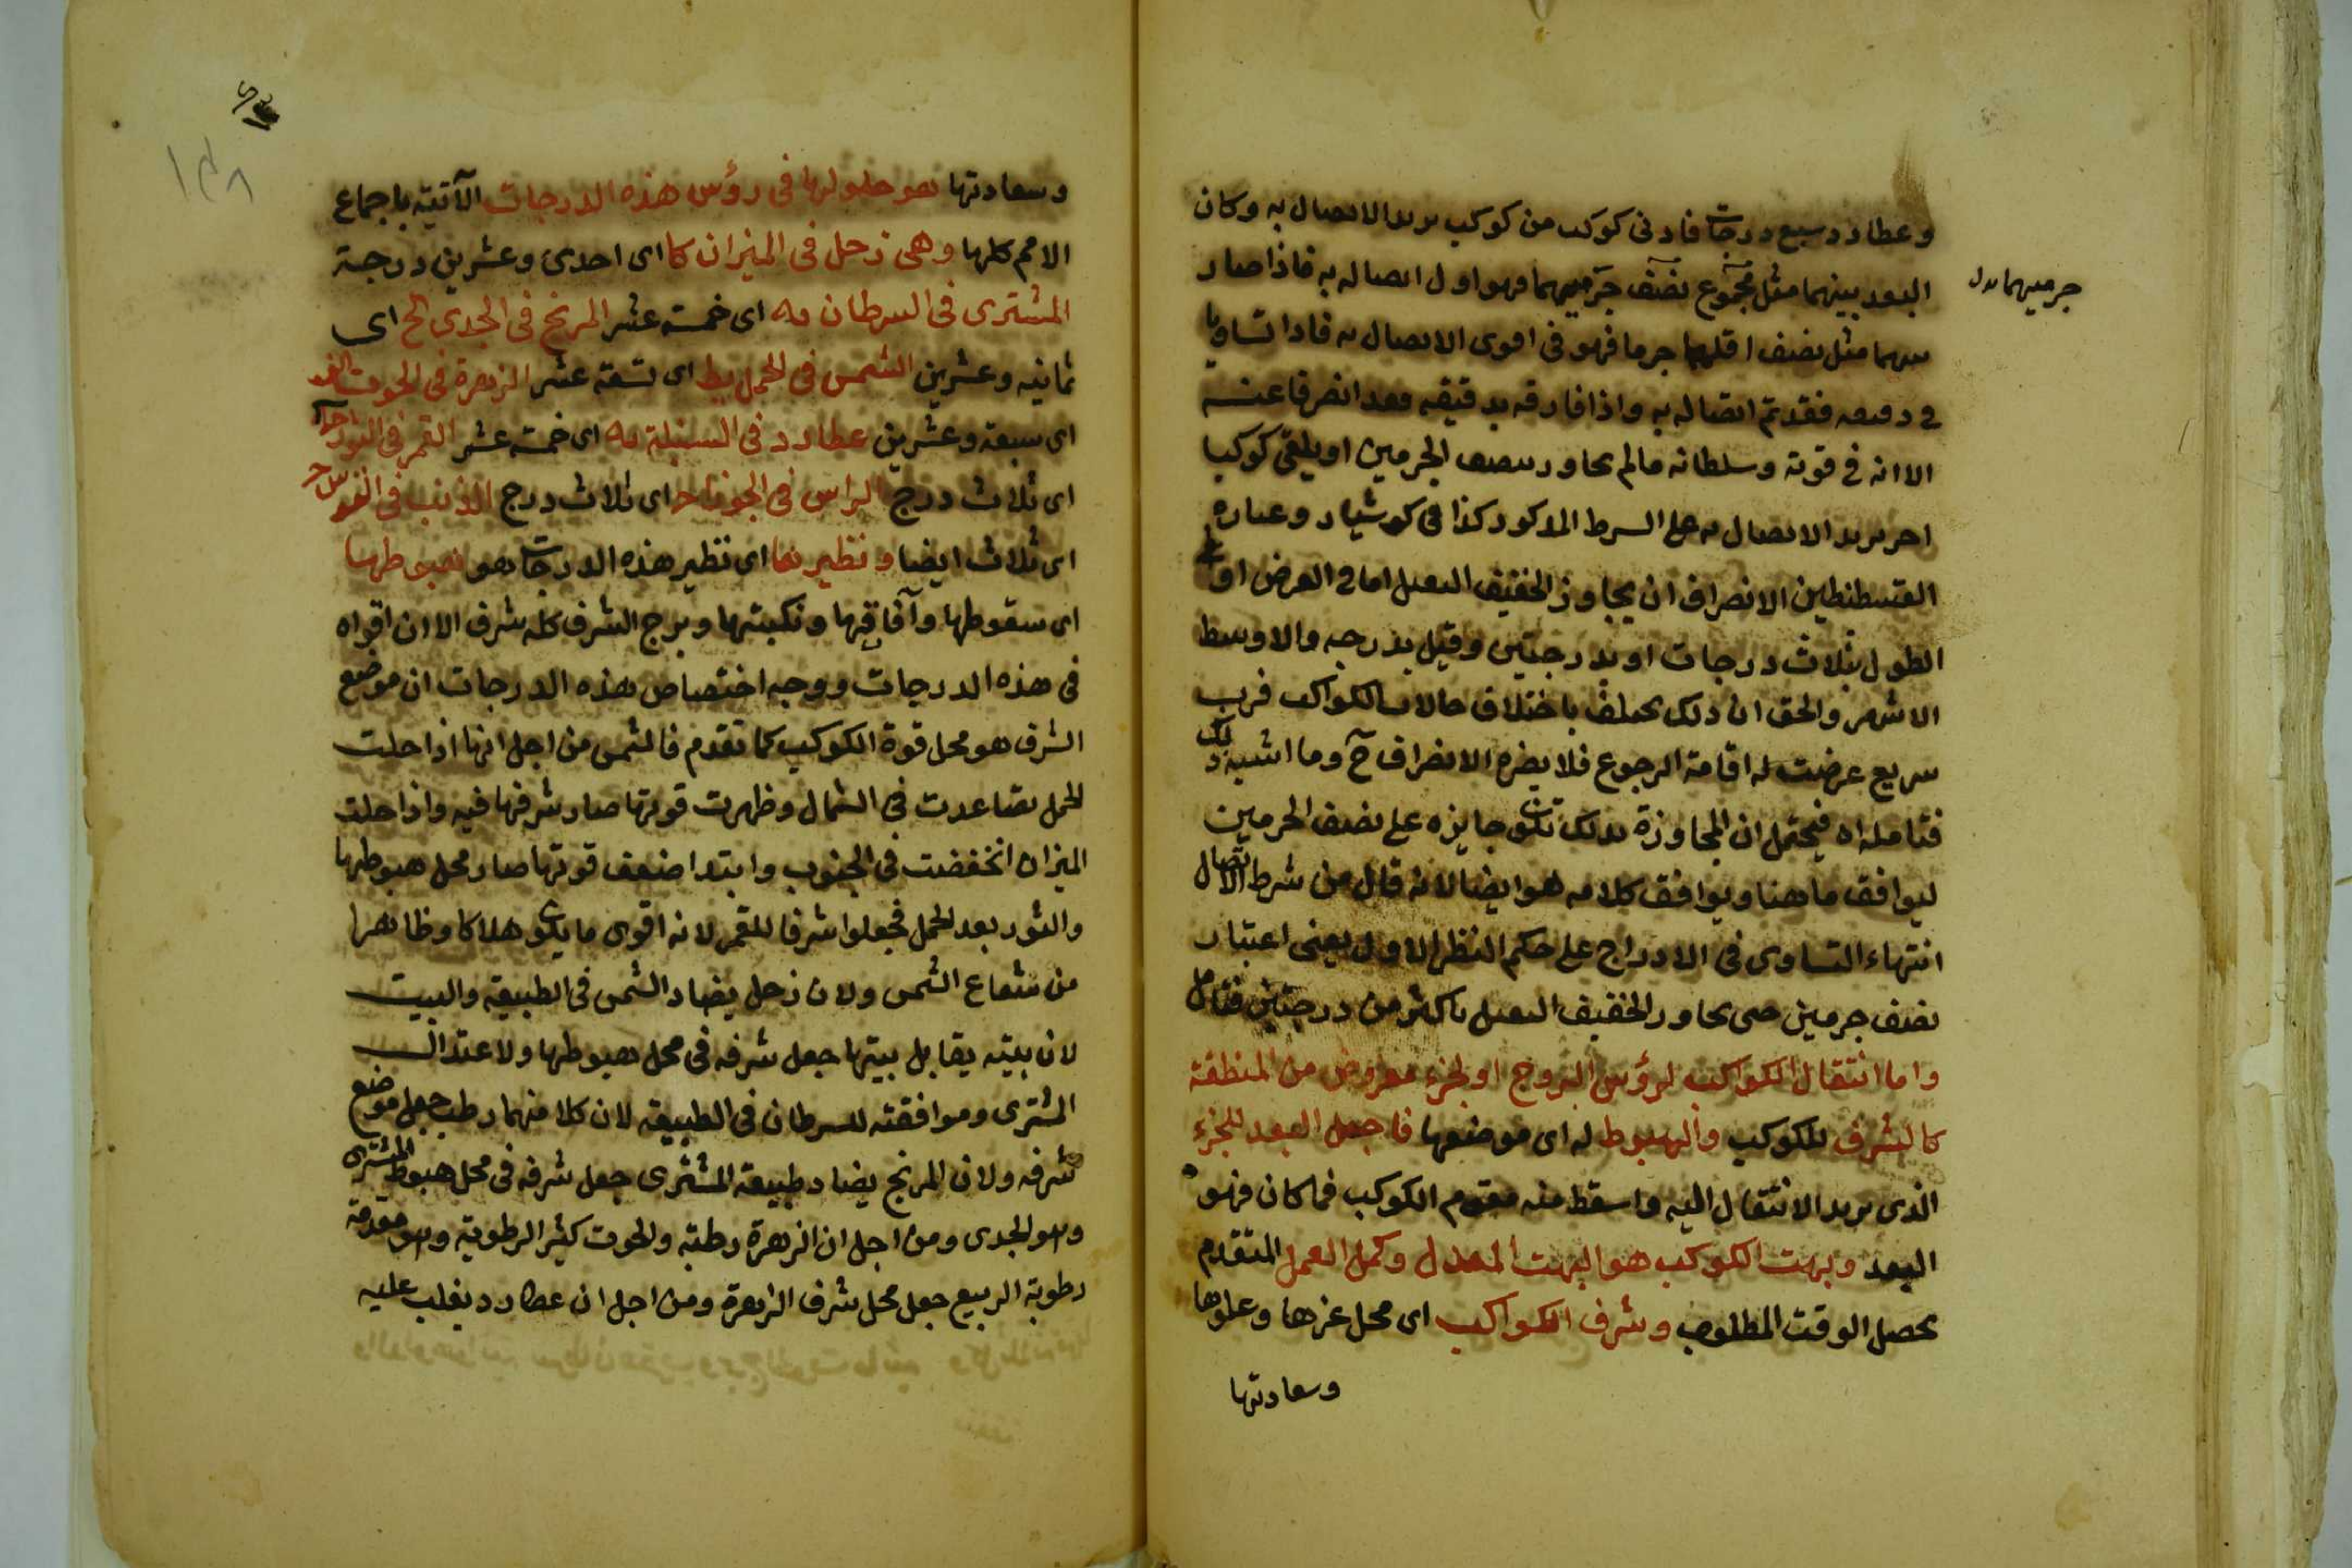 وعطارد سبع درجات فاذ دنى كوكب من كوكب يريد الاتصال به وكان
البعد بينهما مثل مجموع نصف جرميهما فهو اول اتصاله به فاذا صار
جرميهما بدل
بينهما مثل نصف اقلهما جرما فهو في اقوى الاتصال به فاذا تساويا
في دقيقه فقد تم اتصاله به واذا فارقه بدقيقه فقد انصرفا عنه
الا انه في قوته وسلطانه مالم يجاوز نصف الجرمين او يلقى كوكبا
اخر يريد الاتصال به على الشرط المذكور كذا في كوشيار وعباره
القسطنطين الانصراف ان يجاوز الخفيف الثقيل اما في العرض او في
الطول بثلاث درجات او بدرجتين وقيل بدرجه والاوسط
الاشهر والحق ان ذلك يختلف باختلاف حالات الكواكب فرب
سريع عرضت له اقامة الرجوع فلا يضره الانصراف ح وما اشبه ذلك
فتامله اه فيحتمل ان المجاوزة بذلك تكون جايزه على نصف الجرمين
ليوافق ما هنا ويوافق كلامه هو ايضا لانه قال من شرط الاتصال
انتهاء التساوى في الادراج على حكم النظر الاول يعنى اعتبار
نصف جرمين حتى يجاوز الخفيف الثقيل باكثر من درجتين فتامل
واما انتقال الكواكب لرؤس البروج او لجزء مفروض من المنطقة
كالشرف للكوكب والهبوط له اى موضعها فاجعل البعد للجزء
الذى يريد الانتقال اليه واسقط منه مقوم الكوكب فما كان فهو
البعد وبهت الكوكب هو البهت المعدل وكمل العمل المتقدم
يحصل الوقت المطلوب وشرف الكواكب اى محل عزها وعلوها
وسعادتها
وسعادتها هو حلولها فى رؤس هذه الدرجات الآتية باجماع
الامم كلها وهى زحل فى الميزان كا اى احدى وعشرين درجة
المشترى فى السرطان يه اى خمسة عشر المريخ فى الجدى كح اى
ثمانيه وعشرين الشمس فى الحمل يط اى تسعة عشر الزهرة فى الحوت كز
اى سبعة وعشرين عطارد فى السنبلة يه اى خمسة عشر القمر فى الثور ج
اى ثلاث درج الراس فى الجوزا ج اى ثلاث درج الذنب فى القوس ج
اى ثلاث ايضا ونظيرها اى نظير هذه الدرجات هو هبوطها
اى سقوطها وآفاتها ونكبتها وبرج الشرف كله شرف الا ان اقواه
فى هذه الدرجات ووجه اختصاص هذه الدرجات ان موضع
الشرف هو محل قوة الكوكب كما تقدم فالشمس من اجل انها اذا حلت
الحمل تصاعدت فى الشمال وظهرت قوتها صار شرفها فيه واذا حلت
الميزان انخفضت فى الجنوب وابتدا ضعف قوتها صار محل هبوطها
والثور بعد الحمل فجعلوا شرفا للقمر لانه اقوى ما يكون هلالا وظاهرا
من شعاع الشمس ولان زحل يضاد الشمس فى الطبيعة والبيت
لان بيته يقابل بيتها جعل شرفه فى محل هبوطها ولاعتدال
المشترى وموافقته للسرطان فى الطبيعة لان كلا منهما رطب جعل موضع
شرفه ولان المريخ يضاد طبيعة المشترى جعل شرفه فى محل هبوط المشترى
وهو الجدى ومن اجل ان الزهرة رطبة والحوت كثير الرطوبة وهو مقدمة
رطوبة الربيع جعل محل شرف الزهرة ومن اجل ان عطارد يغلب عليه